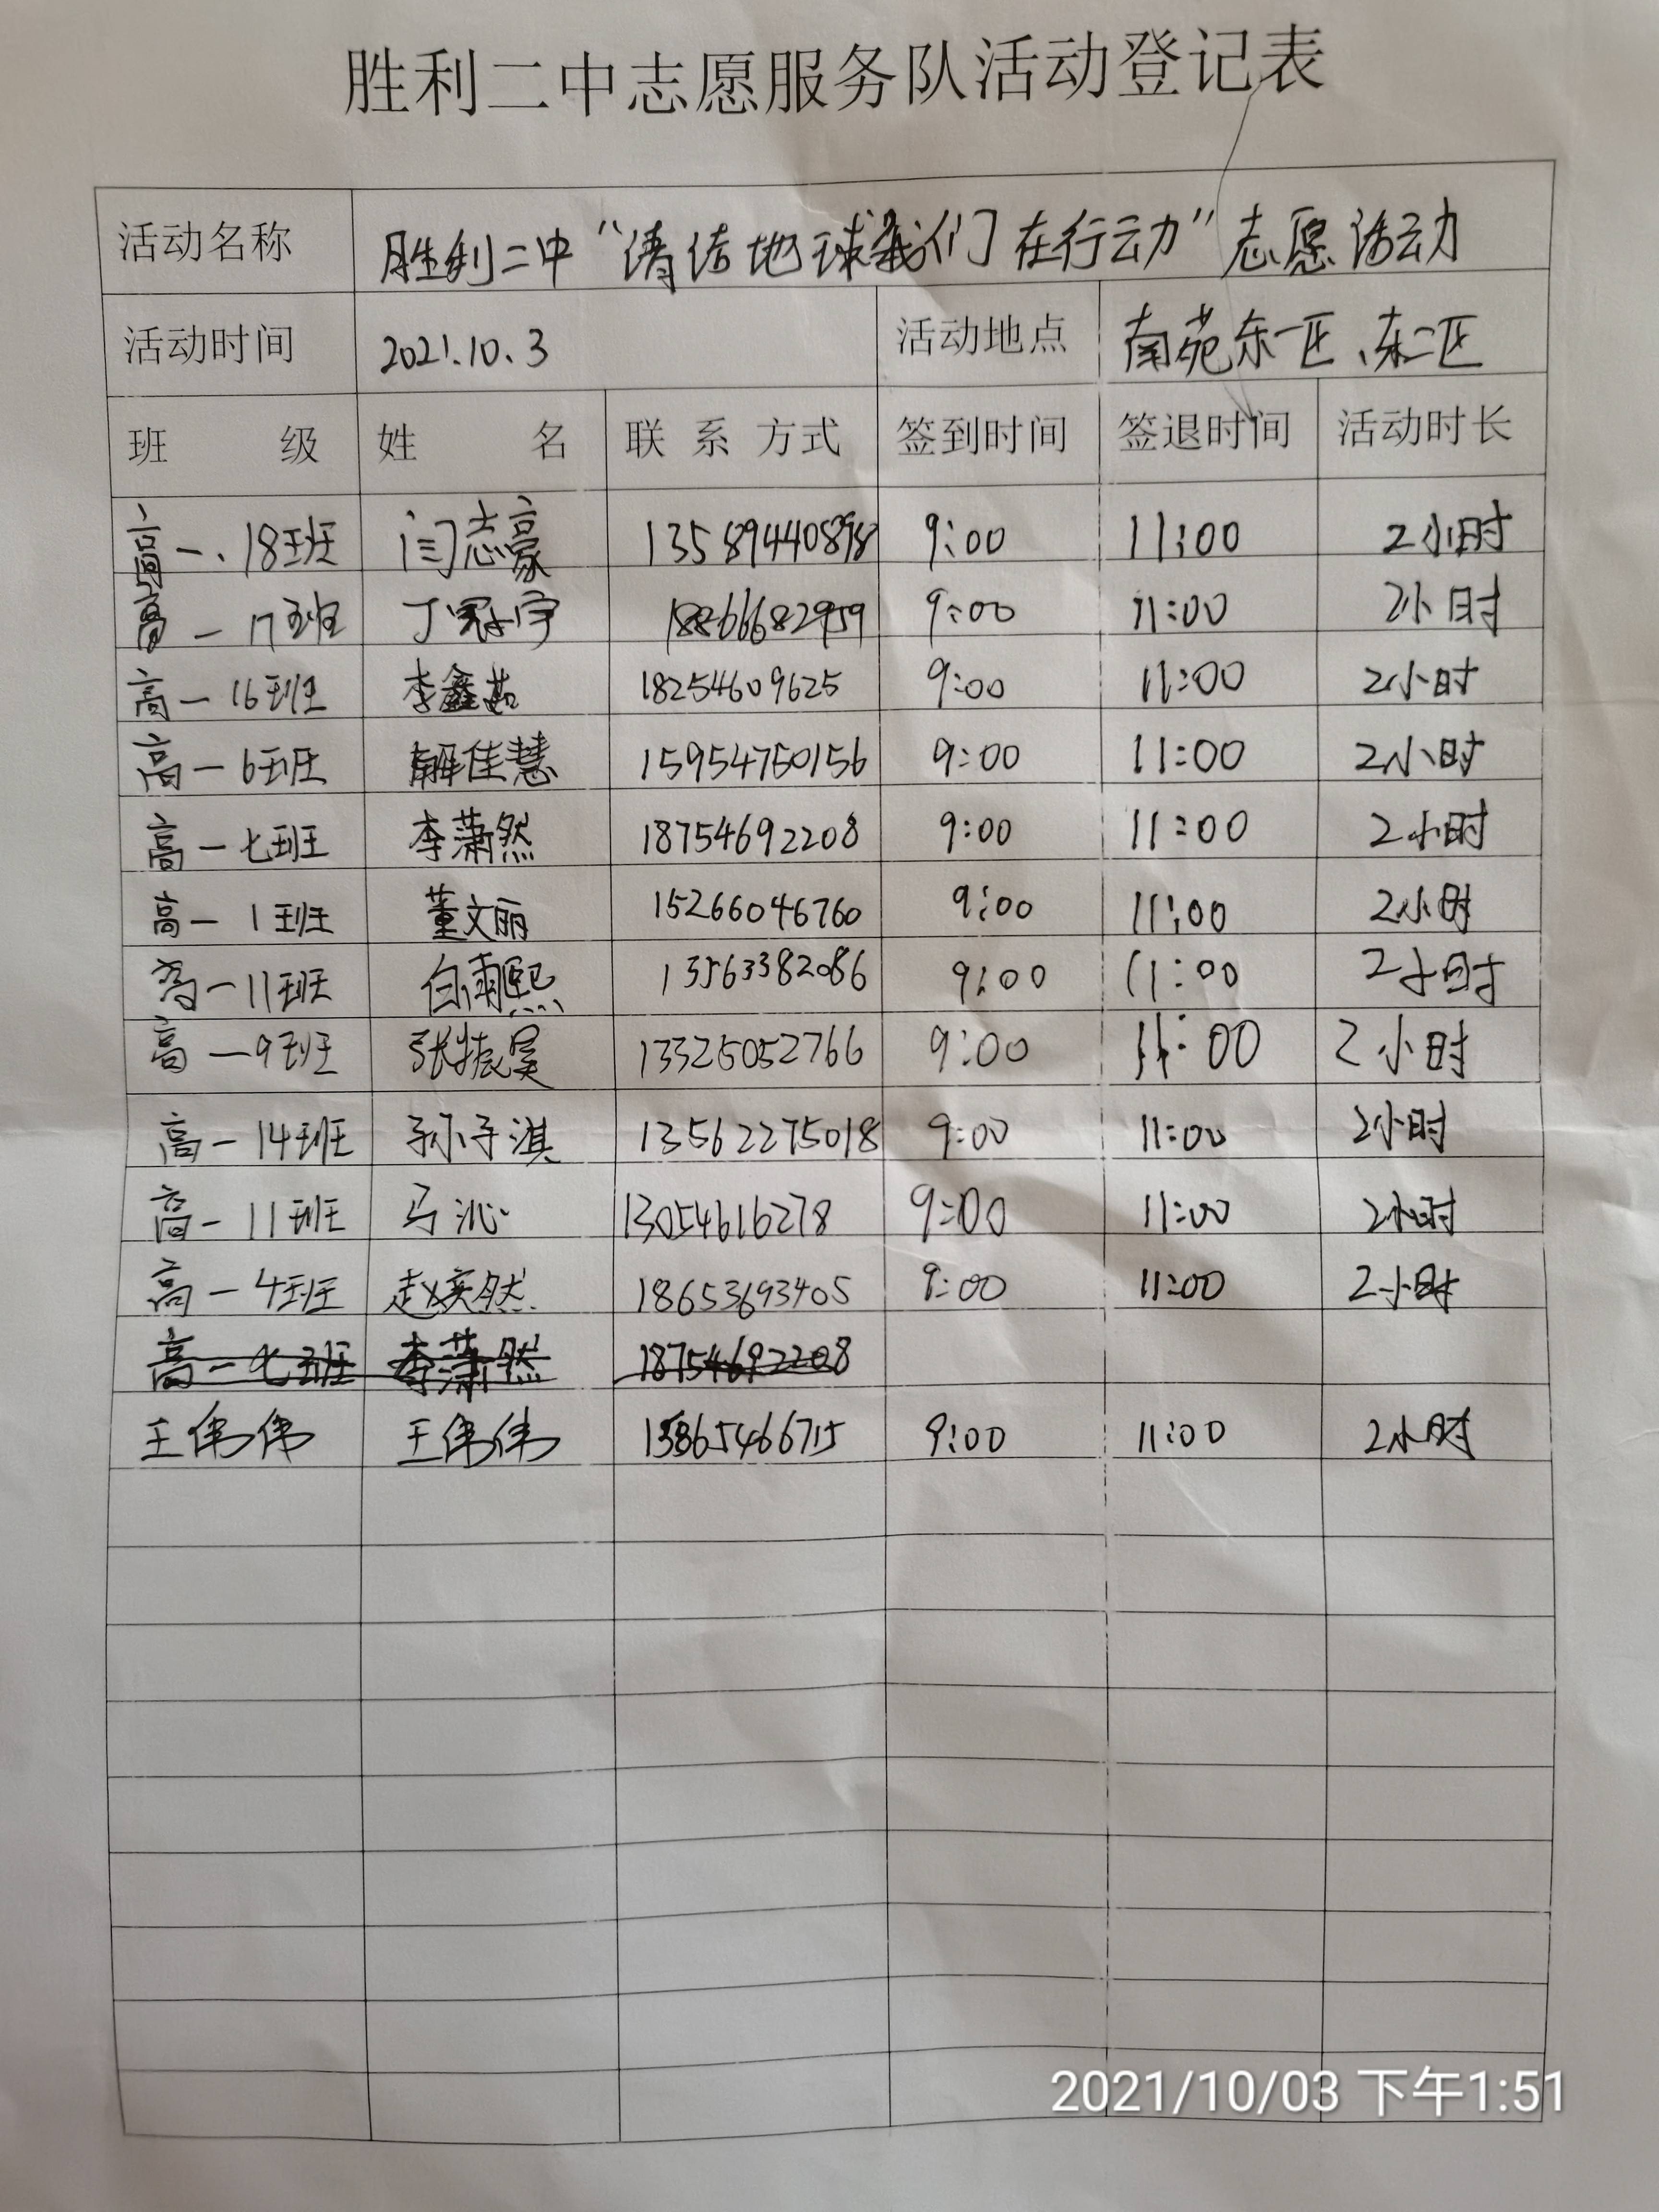 胜利二中志愿服务队活动登记表
活动名称 胜利二中“清洁地球我们在行动”志愿活动
活动时间 2021.10.3 活动地点 南苑东一区、东二区
班 级 姓 名 联系方式 签到时间 签退时间 活动时长
高一、18班 闫志豪 9:00 11:00 2小时
高一17班 丁冠宇 18866682959 9:00 11:00 2小时
高一16班 李鑫茹 18254609625 9:00 11:00 2小时
高一6班 解佳慧 15954750156 9:00 11:00 2小时
高一七班 李潇然 18754692208 9:00 11:00 2小时
高一1班 董文丽 15266046760 9:00 11:00 2小时
高一11班 白雨熙 13563382086 9:00 11:00 2小时
高一9班 张振昊 13325052766 9:00 11:00 2小时
高一14班 孙子淇 13562275018 9:00 11:00 2小时
高一11班 马沁 13054616278 9:00 11:00 2小时
高一4班 赵奕然 18653693405 9:00 11:00 2小时
高一七班 李潇然 18754692208
王伟伟 王伟伟 13865466715 9:00 11:00 2小时
2021/10/03 下午1:51